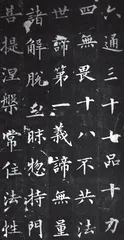 六通三十七品十力
四無畏十八不共法
世諦第一義諦無量
諸解脫三昧惣持門
菩提涅槃常住法性